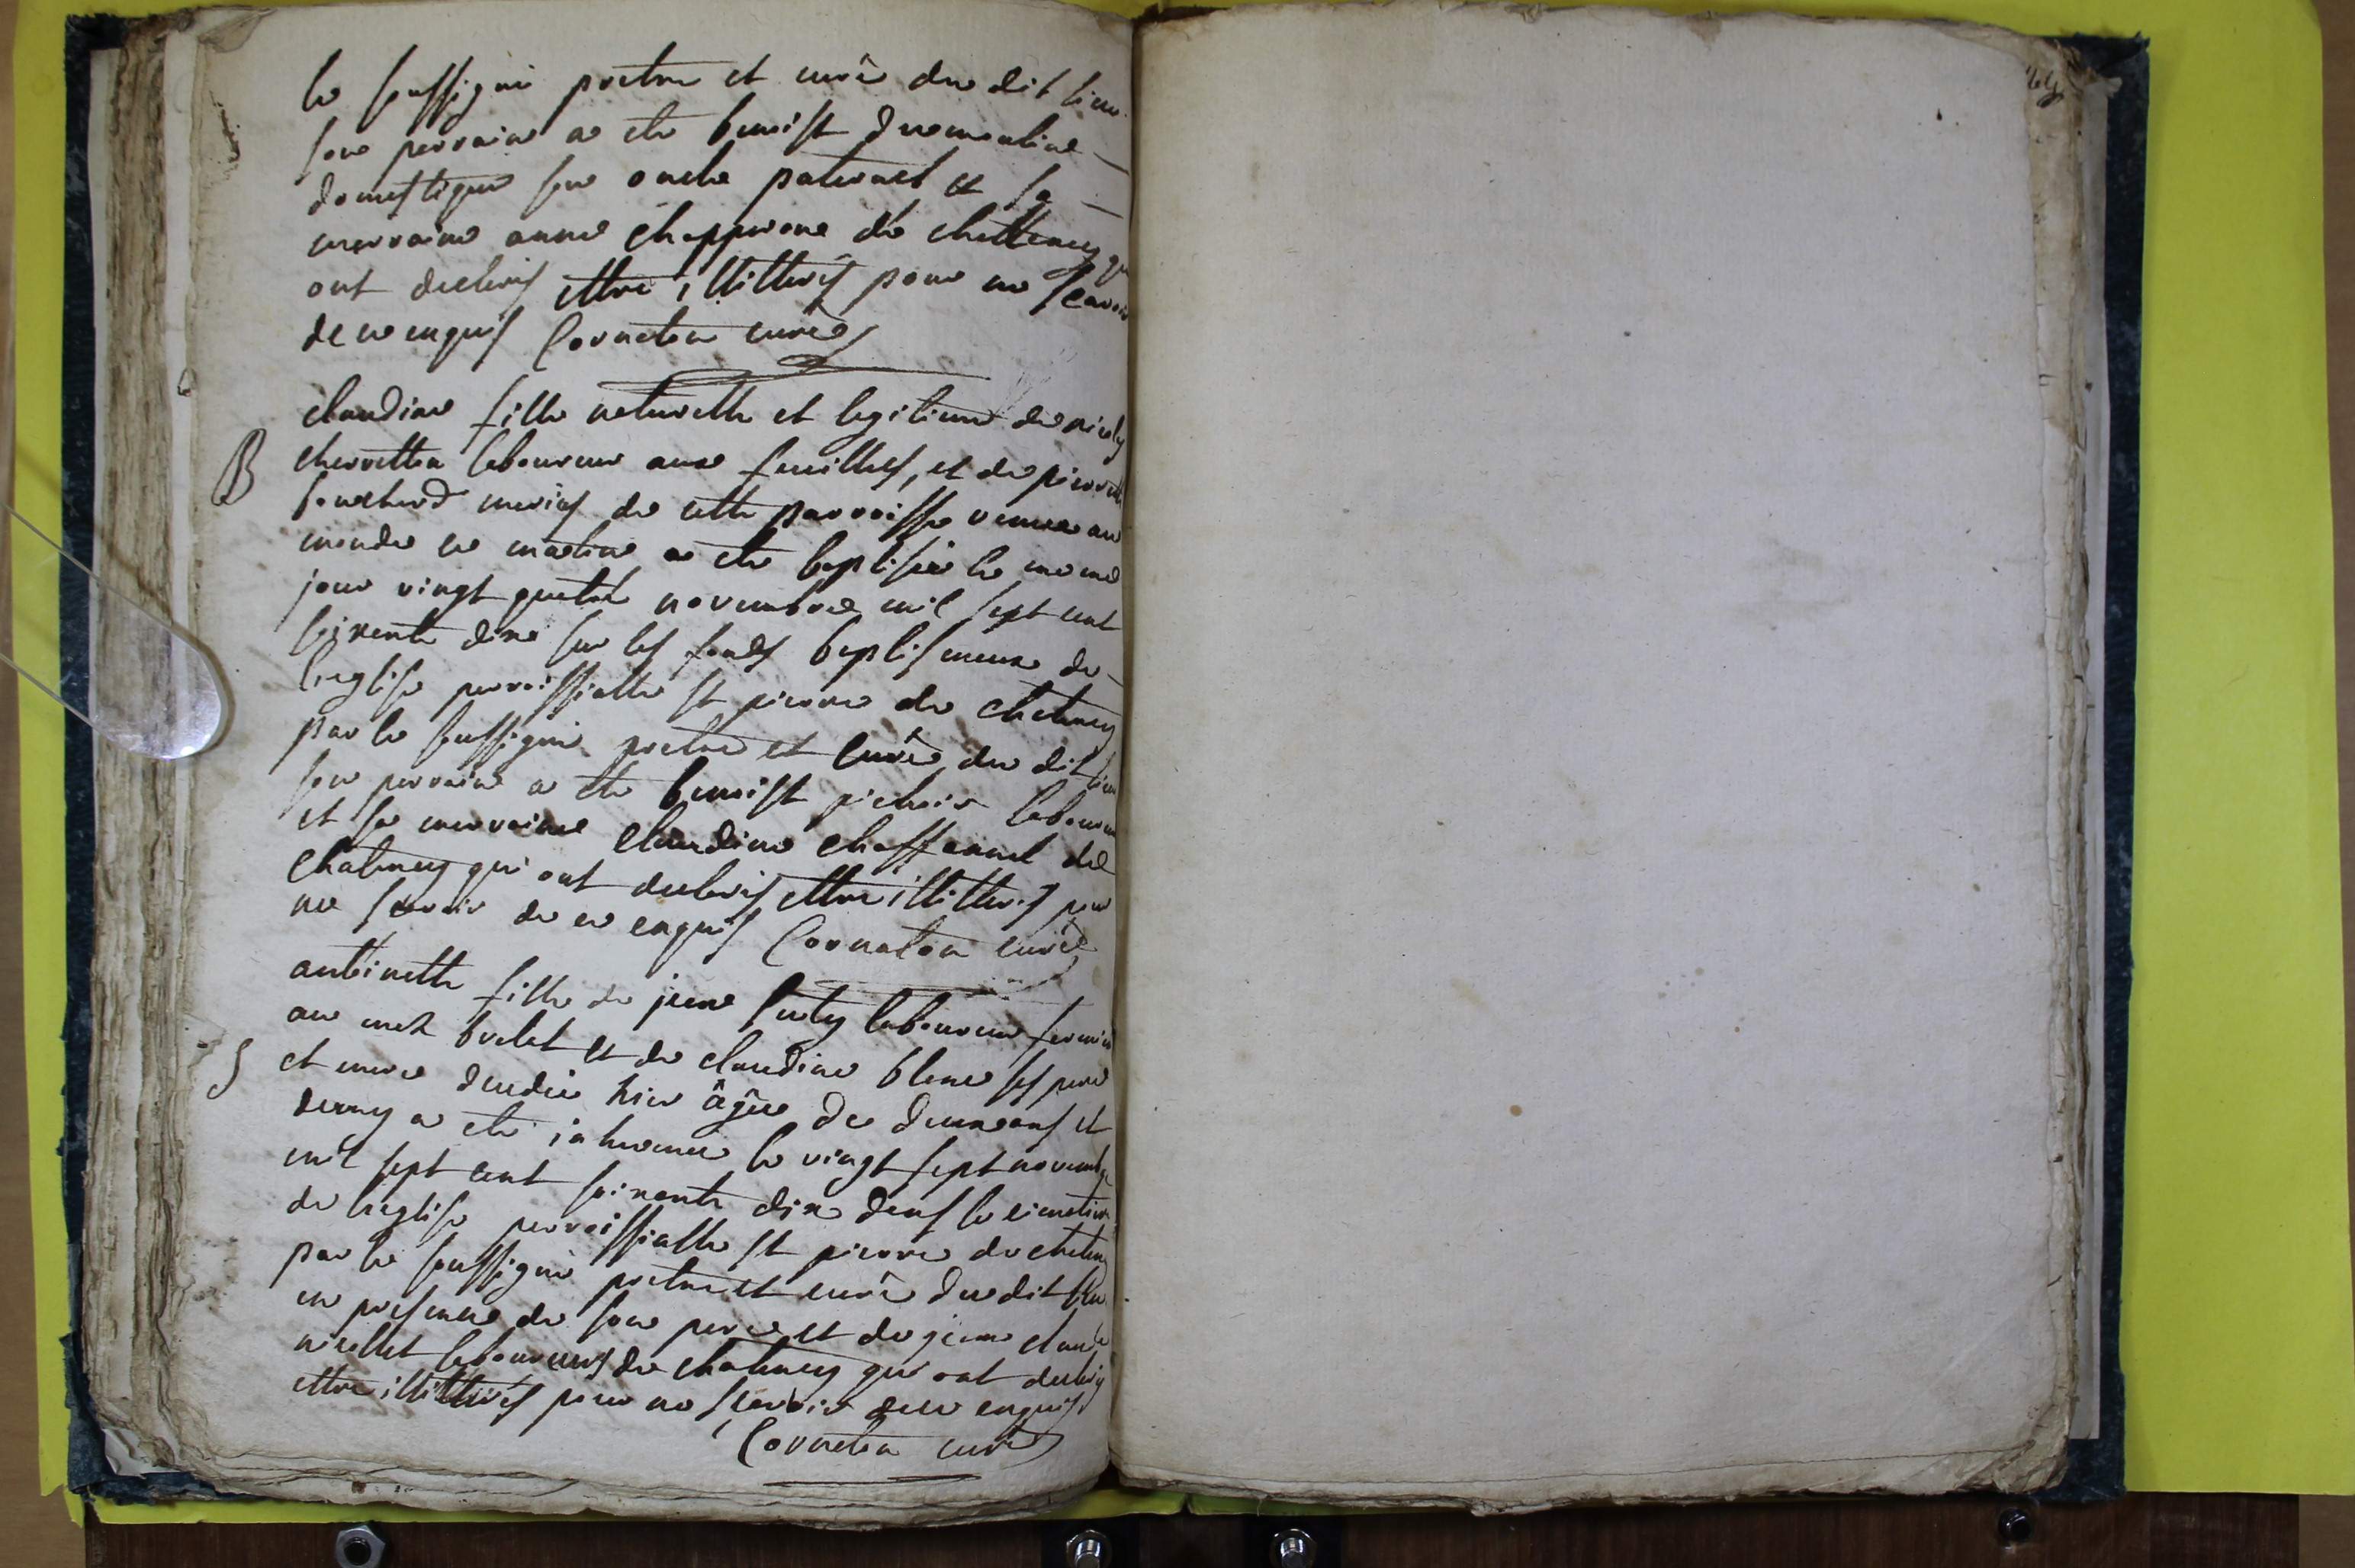 le soussigné pretre et curé du dit lieu
son parrain a ete benoist dumoulin
domestique son oncle paternel et sa
marraine anne chapuis de chettenay qui
ont declarés ettre illitterés pour ne scavoir
de ce enquis Cornaton curé
claudine fille naturelle et legitime de nicolas
B
chervetton laboureur aux feuilles, et de pierrette
fouchard mariés de cette parroisse venue au
monde ce matin a ete baptisée le meme
jour vingt quatre novembre mil sept cent
soixante dix sur les fonds baptismaux de
l'eglise parroissialle st pierre de chatenay
par le soussigné pretre et curé du dit lieu
son parrain a ete benoist laboureur
et sa marraine claudine de
chatenay qui ont declarés ettre illitterés pour
ne scavoir de ce enquis Cornaton curé
antoinette fille de jean laboureur fermier
au et de claudine blanc ses pere
S
et mere decedée hier âgée de deux ans et
demy a ete inhumée le vingt sept novembre
mil sept cent soixante dix dans le cimetiere
de l'eglise parroissialle st pierre de chatenay
par le soussigné pretre et curé du dit lieu
en presence de son pere et de jean claude
nicollet laboureurs de chatenay qui ont declarés
ettre illitterés pour ne scavoir de ce enquis
Cornaton curé